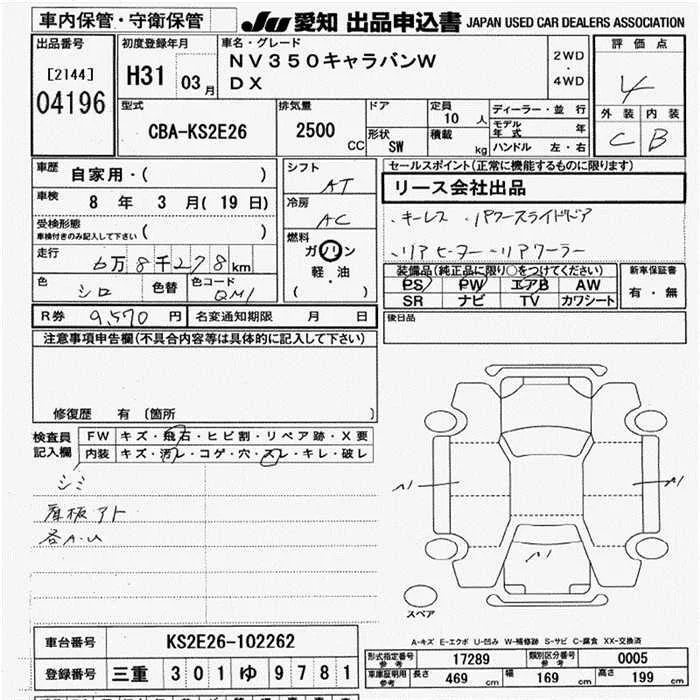 車内保管・守衛保管
JU 愛知 出品申込書 JAPAN USED CAR DEALERS ASSOCIATION
出品番号
[2144]
04196
初度登録年月
H31 03月
車名・グレード
NV350キャラバンW
DX
2WD
・
4WD
評価点
4
外装 内装
C B
型式
CBA-KS2E26
排気量
2500 CC
ドア
形状 SW
定員 10 人
積載 kg
ディーラー・並行
モデル年式 年
ハンドル 左・右
車歴 自家用・( )
車検 8 年 3 月( 19 日)
受検形態
車検付きのみ記入して下さい ( )
走行 6万8千278km
色 シロ 色替 色コード QM1
シフト AT
冷房 AC
燃料
ガソリン
軽・油
( )
セールスポイント(正常に機能するものに限ります)
リース会社出品
・キーレス ・パワースライドドア
・リアヒーター・リアクーラー
装備品(純正品に限り○をつけてください)
PS PW エアB AW
SR ナビ TV カワシート
新車保証書
有・無
R券 9,570 円 名変通知期限 月 日
後日品
注意事項申告欄(不具合内容等は具体的に記入して下さい)
修復歴 有 〔箇所 〕
検査員記入欄
FW キズ・飛石・ヒビ割・リペア跡・X要
内装 キズ・汚レ・コゲ・穴・スレ・キレ・破レ
シミ
看板アト
各A.U
A1
A1
A1
スペア
A-キズ E-エクボ U-凹み W-補修跡 S-サビ C-腐食 XX-交換済
車台番号 KS2E26-102262
登録番号 三重 301 ゆ 9781
形式指定番号 参考 17289
類別区分番号 参考 0005
車庫証明用 参考
長さ 469 cm
幅 169 cm
高さ 199 cm